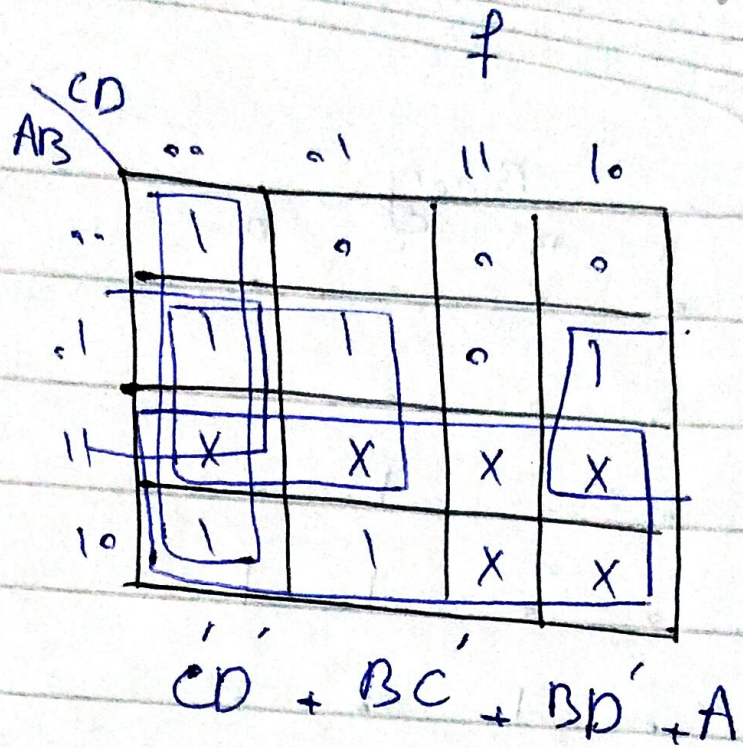 f
CD
AB 00 01 11 10
00 1 0 0 0
01 1 1 0 1
11 X X X X
10 1 1 X X
C'D' + BC' + BD' + A